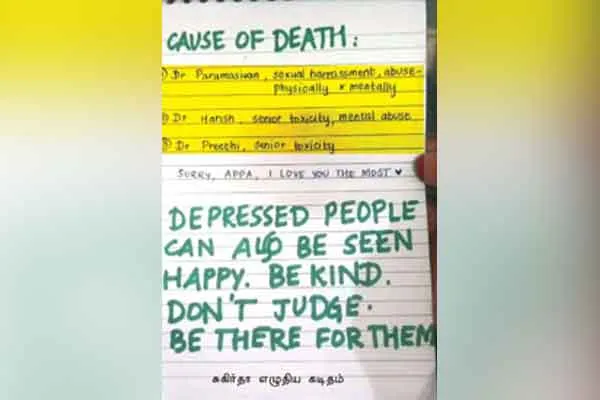 CAUSE OF DEATH:
① Dr Paramasivan, sexual harrassment, abuse-
physically & mentally
② Dr Harish, senior toxicity, mental abuse
③ Dr Preethi, senior toxicity
SORRY, APPA, I LOVE YOU THE MOST ♥
DEPRESSED PEOPLE
CAN ALSO BE SEEN
HAPPY. BE KIND.
DON'T JUDGE.
BE THERE FOR THEM
சுகிர்தா எழுதிய கடிதம்